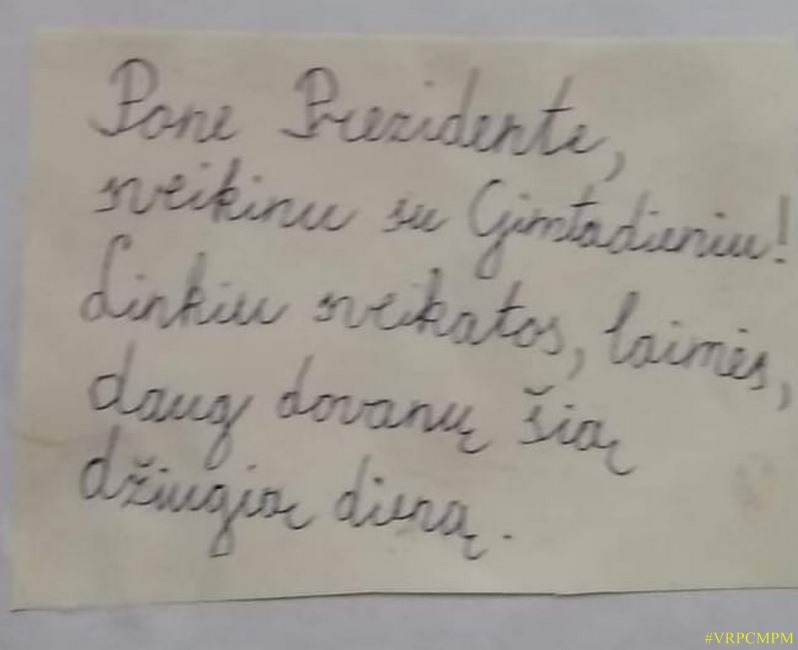 Pone Prezidente,
sveikinu su Gimtadieniu!
Linkiu sveikatos, laimės,
daug dovanų šią
džiugią dieną.
#VRPCMPM